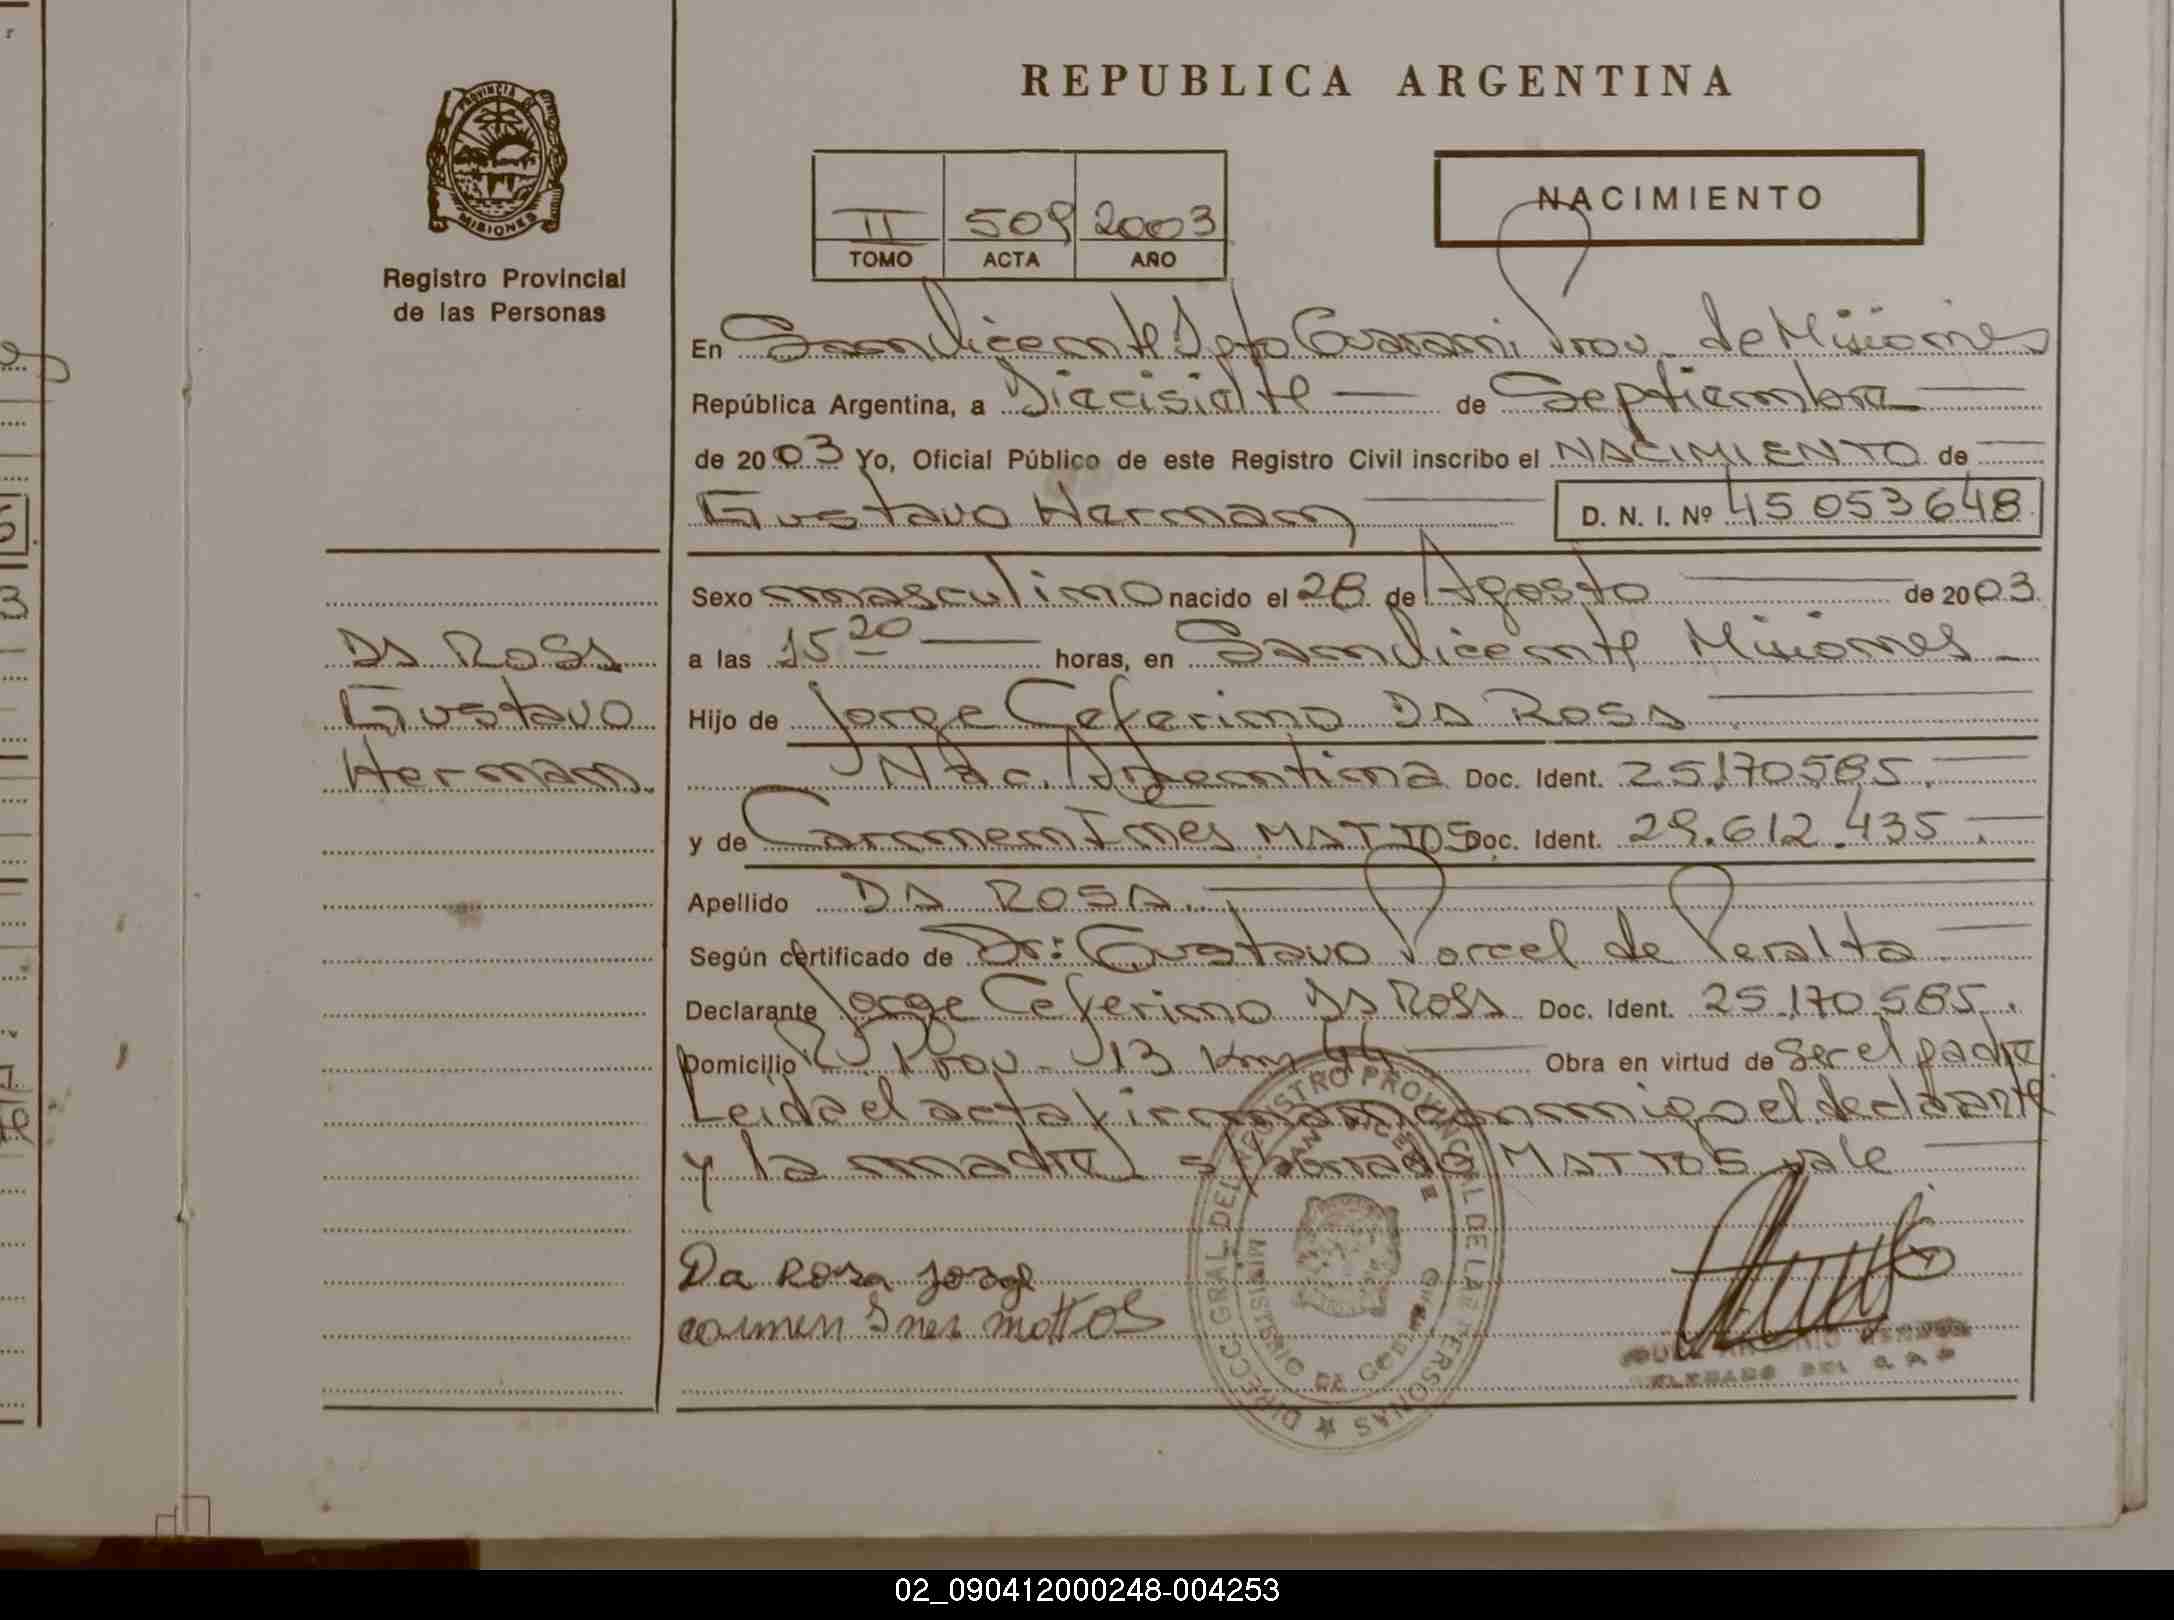 PROVINCIA DE
MISIONES
Registro Provincial
de las Personas
REPUBLICA ARGENTINA
II 509 2003
TOMO ACTA AÑO
NACIMIENTO
En San Vicente Dpto Guarani Prov. de Misiones
República Argentina, a Diecisiete de Septiembre
de 2003 Yo, Oficial Público de este Registro Civil inscribo el NACIMIENTO de
Gustavo Hernan D. N. I. Nº 45 053 648
Sexo masculino nacido el 28 de Agosto de 2003
a las 15 20 horas, en San Vicente Misiones
Hijo de Jorge Ceferino DA ROSA
Nac. Argentina Doc. Ident. 25.170.585.
y de Carmen Ines MATTOS Doc. Ident. 29.612.435.
Apellido DA ROSA.
Según certificado de Dr: Gustavo Porcel de Peralta
Declarante Jorge Ceferino DA ROSA Doc. Ident. 25.170.585.
Domicilio Prov. 13 Km 44 Obra en virtud de ser el padre
Leida el acta firman conmigo el declarante
y la madre s/ borrado MATTOS vale
Da Rosa Jorge
carmen Ines mattos
DA ROSA
Gustavo
Hernan.
DIRECC. GRAL. DEL REGISTRO PROVINCIAL DE LAS PERSONAS
SAN VICENTE
MINISTERIO DE GOBIERNO
02_090412000248-004253